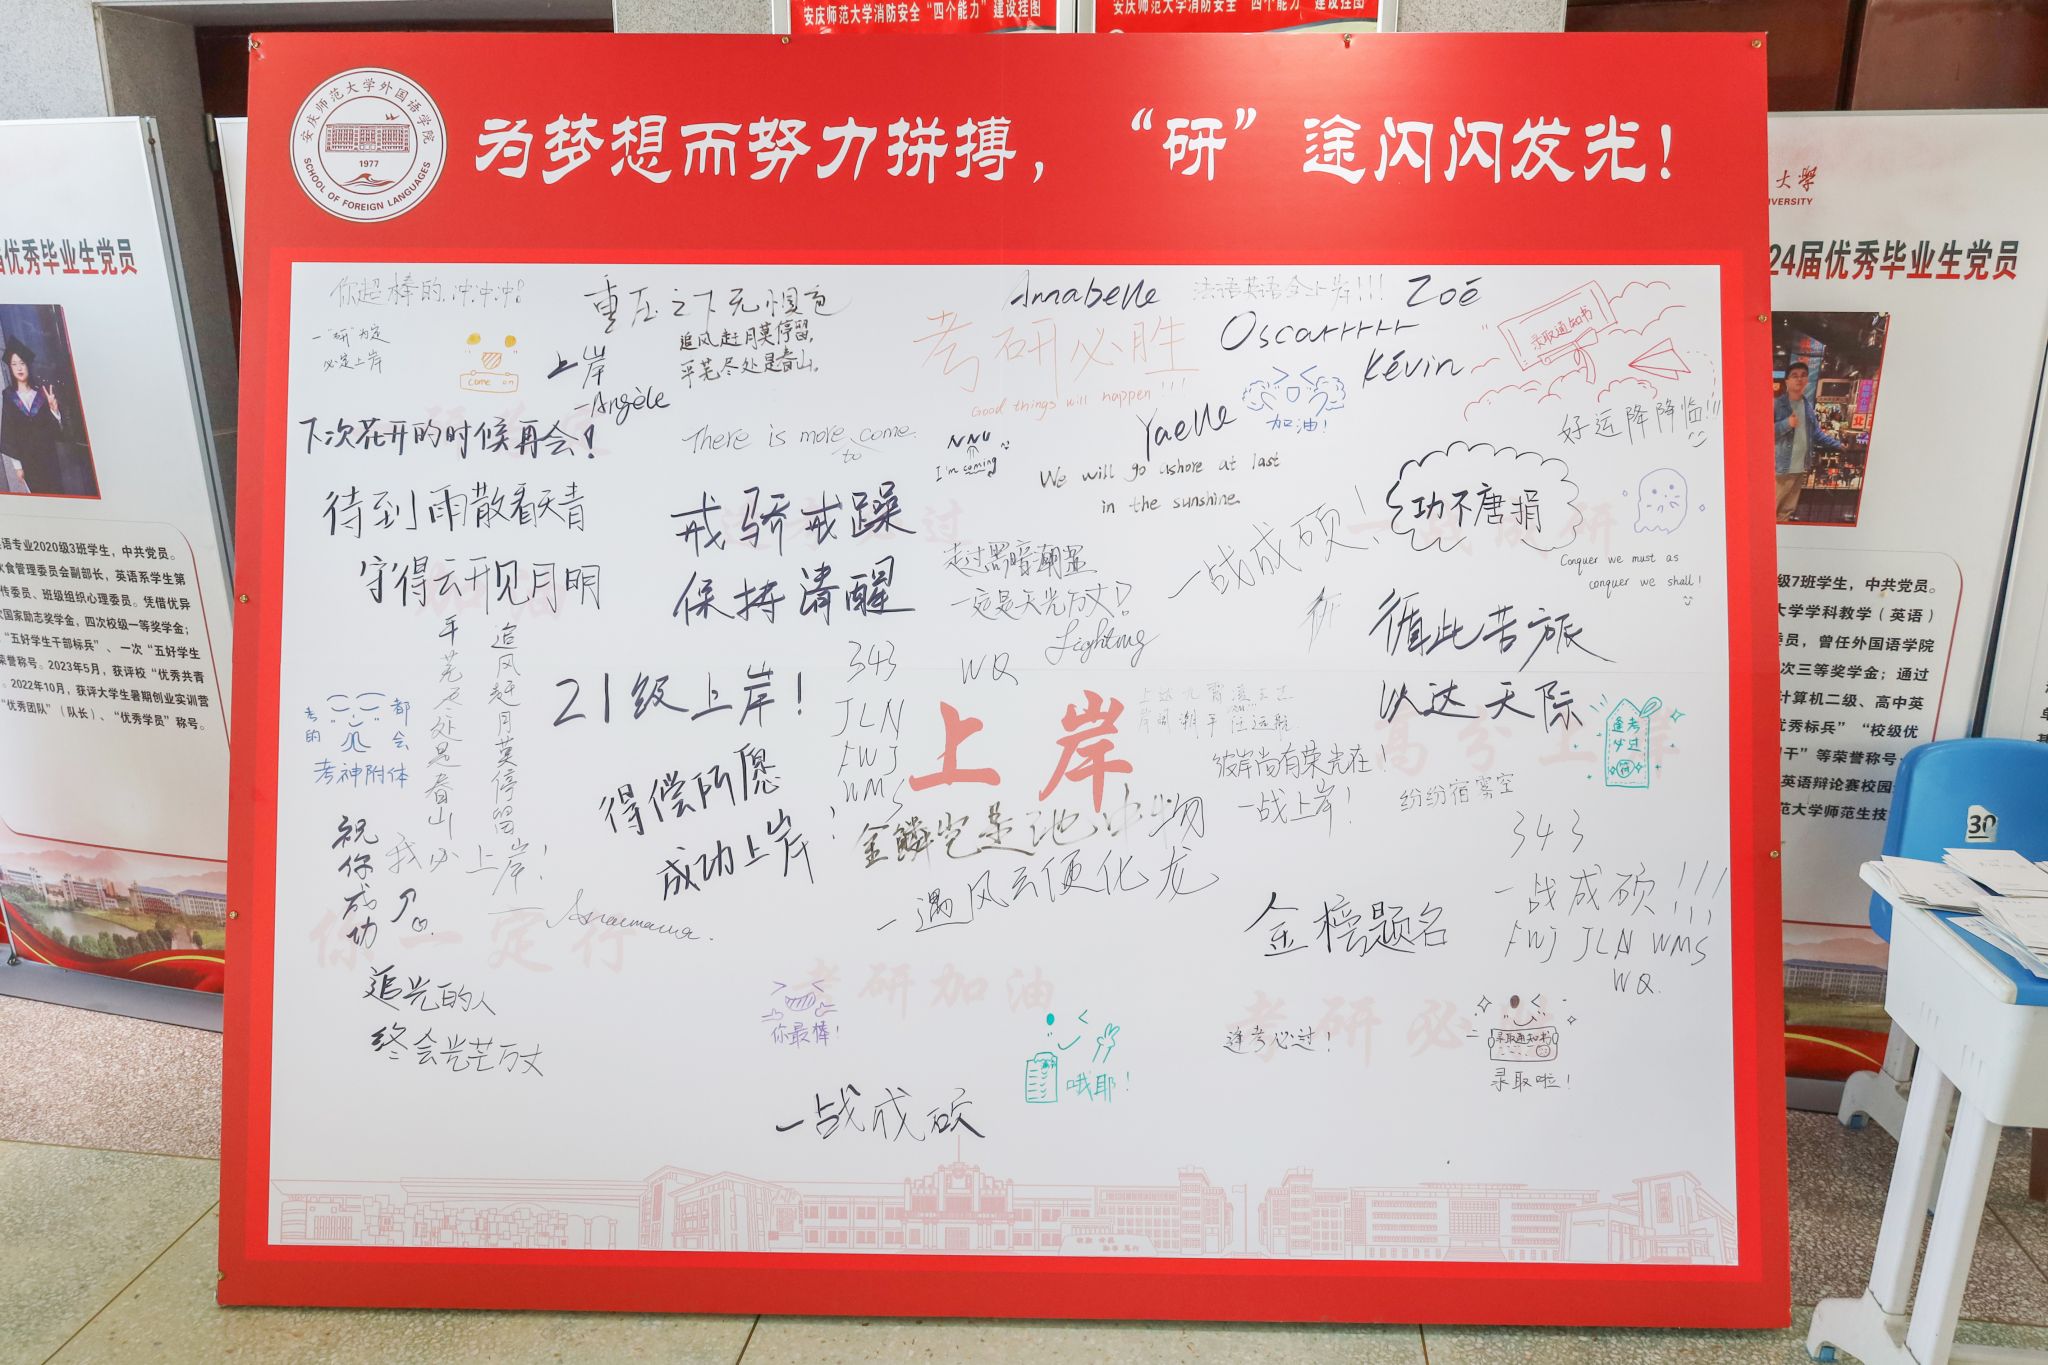 安庆师范大学消防安全“四个能力”建设挂图
安庆师范大学消防安全“四个能力”建设挂图
安庆师范大学外国语学院
1977
SCHOOL OF FOREIGN LANGUAGES
为梦想而努力拼搏，“研”途闪闪发光！
你超棒的.冲.冲.冲!
一“研”为定
必定上岸
come on
重压之下无惧色
追风赶月莫停留,
平芜尽处是春山。
上岸
-Angèle
考研必胜
Good things will happen!!!
Annabelle
法语英语全上岸!!!
Zoé
Oscarrrrr
Kévin
Yaelle
加油!
录取通知书
好运降降临!!!
下次花开的时候再会!
There is more to come.
NNU
I'm coming
We will go ashore at last
in the sunshine.
待到雨散看天青
守得云开见月明
戒骄戒躁
保持清醒
走过黑暗潮湿
一定是天光万丈!
Fighting
一战成硕!
功不唐捐
Conquer we must as
conquer we shall!
循此苦旅
以达天际
追风赶月莫停留
平芜尽处是春山
21级上岸!
343
JLN
FWJ
WMS
WQ
上岸
考的都会
考神附体
得偿所愿
成功上岸!
彼岸尚有荣光在!
一战上岸!
纷纷宿寥空
逢考必过
祝你成功
我必上岸!
金鳞岂是池中物
一遇风云便化龙
金榜题名
343
一战成硕!!!
FWJ JLN WMS
WQ.
你一定行
追光的人
终会光芒万丈
考研加油
你最棒!
哦耶!
考研必
逢考必过!
录取通知书
录取啦!
一战成硕
优秀毕业生党员
语专业2020级3班学生，中共党员。
饮食管理委员会副部长，英语系学生第
传委员、班级组织心理委员。凭借优异
次国家励志奖学金，四次校级一等奖学金；
“五好学生干部标兵”、一次“五好学生
荣誉称号。2023年5月，获评校“优秀共青
2022年10月，获评大学生暑期创业实训营
“优秀团队”（队长）、“优秀学员”称号。
大学
IVERSITY
24届优秀毕业生党员
级7班学生，中共党员。
大学学科教学（英语）
委员，曾任外国语学院
次三等奖学金；通过
计算机二级、高中英
优秀标兵”“校级优
干”等荣誉称号
英语辩论赛校园
范大学师范生技
30